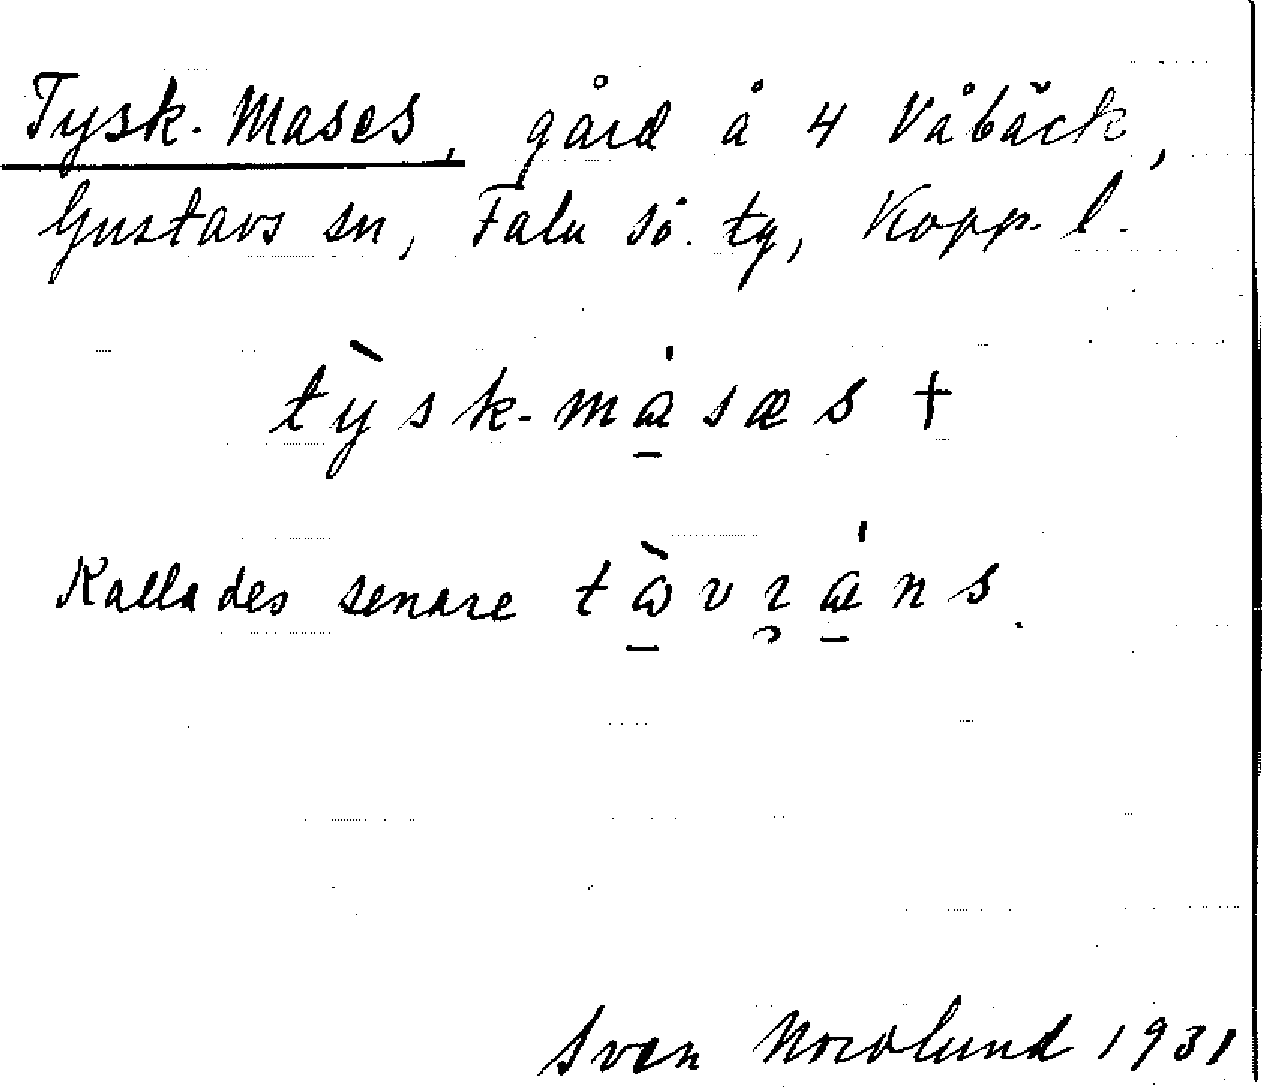 Tysk-Mases, gård å 4 Våbäck,
Gustavs sn, Falu sö. tg, Kopp. l.
tỳsk-ma̱̍sæs †
Kallades senare
Sven Nordlund 1931